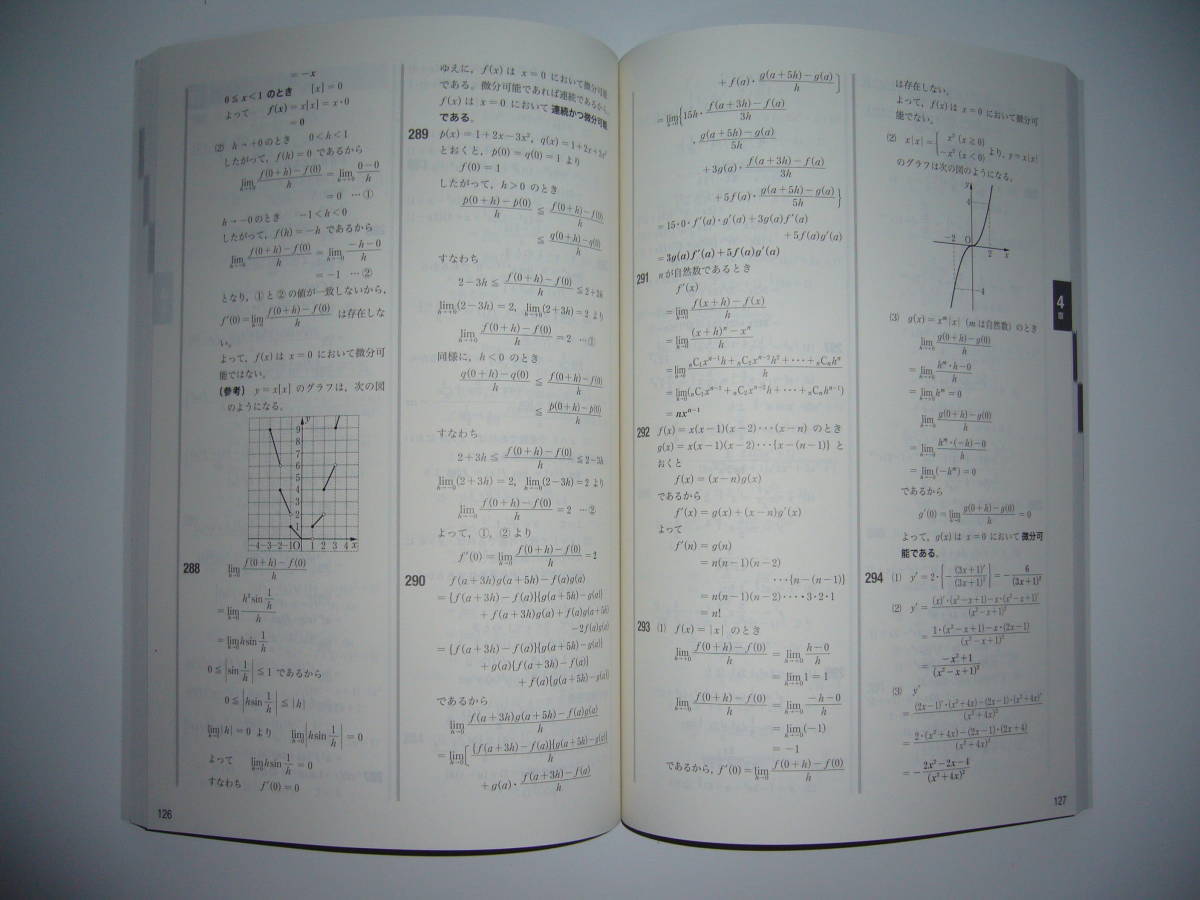 = −x
0≦x<1 のとき [x]=0
よって f(x)=x[x]=x・0
=0
(2) h→+0のとき 0<h<1
したがって，f(h)=0 であるから
lim_{h→+0} (f(0+h)−f(0))/h = lim_{h→+0} (0−0)/h
=0 …①
h→−0のとき −1<h<0
したがって，f(h)=−h であるから
lim_{h→−0} (f(0+h)−f(0))/h = lim_{h→−0} (−h−0)/h
=−1 …②
となり，①と②の値が一致しないから，
f′(0)=lim_{h→0} (f(0+h)−f(0))/h は存在しな
い。
よって，f(x)は x=0 において微分可
能ではない。
(参考) y=x[x] のグラフは，次の図
のようになる。
y
9
8
7
6
5
4
3
2
1
−4−3−2−1O 1 2 3 4 x
288 lim_{h→0} (f(0+h)−f(0))/h
=lim_{h→0} (h² sin 1/h)/h
=lim_{h→0} h sin 1/h
0≦|sin 1/h|≦1 であるから
0≦|h sin 1/h|≦|h|
lim_{h→0}|h|=0 より lim_{h→0}|h sin 1/h|=0
よって lim_{h→0} h sin 1/h=0
すなわち f′(0)=0
126
ゆえに，f(x)は x=0 において微分可能
である。微分可能であれば連続であるから，
f(x)は x=0 において 連続かつ微分可能
である。
289 p(x)=1+2x−3x²，q(x)=1+2x+3x²
とおくと，p(0)=q(0)=1 より
f(0)=1
したがって，h>0 のとき
(p(0+h)−p(0))/h ≦ (f(0+h)−f(0))/h
≦ (q(0+h)−q(0))/h
すなわち
2−3h≦ (f(0+h)−f(0))/h ≦2+3h
lim_{h→+0}(2−3h)=2，lim_{h→+0}(2+3h)=2 より
lim_{h→+0} (f(0+h)−f(0))/h =2 …①
同様に，h<0 のとき
(q(0+h)−q(0))/h ≦ (f(0+h)−f(0))/h
≦ (p(0+h)−p(0))/h
すなわち
2+3h≦ (f(0+h)−f(0))/h ≦2−3h
lim_{h→−0}(2+3h)=2，lim_{h→−0}(2−3h)=2 より
lim_{h→−0} (f(0+h)−f(0))/h =2 …②
よって，①，②より
f′(0)=lim_{h→0} (f(0+h)−f(0))/h =2
290 f(a+3h)g(a+5h)−f(a)g(a)
={f(a+3h)−f(a)}{g(a+5h)−g(a)}
+f(a+3h)g(a)+f(a)g(a+5h)
−2f(a)g(a)
={f(a+3h)−f(a)}{g(a+5h)−g(a)}
+g(a){f(a+3h)−f(a)}
+f(a){g(a+5h)−g(a)}
であるから
lim_{h→0} (f(a+3h)g(a+5h)−f(a)g(a))/h
=lim_{h→0}[ ({f(a+3h)−f(a)}{g(a+5h)−g(a)})/h
+g(a)・(f(a+3h)−f(a))/h
+f(a)・(g(a+5h)−g(a))/h ]
=lim_{h→0}{15h・(f(a+3h)−f(a))/3h
・(g(a+5h)−g(a))/5h
+3g(a)・(f(a+3h)−f(a))/3h
+5f(a)・(g(a+5h)−g(a))/5h }
=15・0・f′(a)・g′(a)+3g(a)f′(a)
+5f(a)g′(a)
=3g(a)f′(a)+5f(a)g′(a)
291 nが自然数であるとき
f′(x)
=lim_{h→0} (f(x+h)−f(x))/h
=lim_{h→0} ((x+h)ⁿ−xⁿ)/h
=lim_{h→0} (ₙC₁xⁿ⁻¹h+ₙC₂xⁿ⁻²h²+・・・+ₙCₙhⁿ)/h
=lim_{h→0}(ₙC₁xⁿ⁻¹+ₙC₂xⁿ⁻²h+・・・+ₙCₙhⁿ⁻¹)
=nxⁿ⁻¹
292 f(x)=x(x−1)(x−2)・・・(x−n) のとき
g(x)=x(x−1)(x−2)・・・{x−(n−1)} と
おくと
f(x)=(x−n)g(x)
であるから
f′(x)=g(x)+(x−n)g′(x)
よって
f′(n)=g(n)
=n(n−1)(n−2)
・・・{n−(n−1)}
=n(n−1)(n−2)・・・・3・2・1
=n!
293 (1) f(x)=|x| のとき
lim_{h→+0} (f(0+h)−f(0))/h = lim_{h→+0} (h−0)/h
=lim_{h→+0} 1=1
lim_{h→−0} (f(0+h)−f(0))/h = lim_{h→−0} (−h−0)/h
=lim_{h→−0}(−1)
=−1
であるから，f′(0)=lim_{h→0} (f(0+h)−f(0))/h
は存在しない。
よって，f(x)は x=0 において微分可
能でない。
(2) x|x|={ x² (x≧0) −x² (x<0) より，y=x|x|
のグラフは次の図のようになる。
y
4
−2 O 2 x
−4
(3) g(x)=xᵐ|x| (mは自然数) のとき
lim_{h→+0} (g(0+h)−g(0))/h
=lim_{h→+0} (hᵐ・h−0)/h
=lim_{h→+0} hᵐ=0
lim_{h→−0} (g(0+h)−g(0))/h
=lim_{h→−0} (hᵐ・(−h)−0)/h
=lim_{h→−0}(−hᵐ)=0
であるから
g′(0)=lim_{h→0} (g(0+h)−g(0))/h =0
よって，g(x)は x=0 において微分可
能である。
294 (1) y′=2・{−(3x+1)′/(3x+1)²}=−6/(3x+1)²
(2) y′= ((x)′・(x²−x+1)−x・(x²−x+1)′)/(x²−x+1)²
= (1・(x²−x+1)−x・(2x−1))/(x²−x+1)²
= (−x²+1)/(x²−x+1)²
(3) y′
= ((2x−1)′・(x²+4x)−(2x−1)・(x²+4x)′)/(x²+4x)²
= (2・(x²+4x)−(2x−1)・(2x+4))/(x²+4x)²
=−(2x²−2x−4)/(x²+4x)²
4
章
127